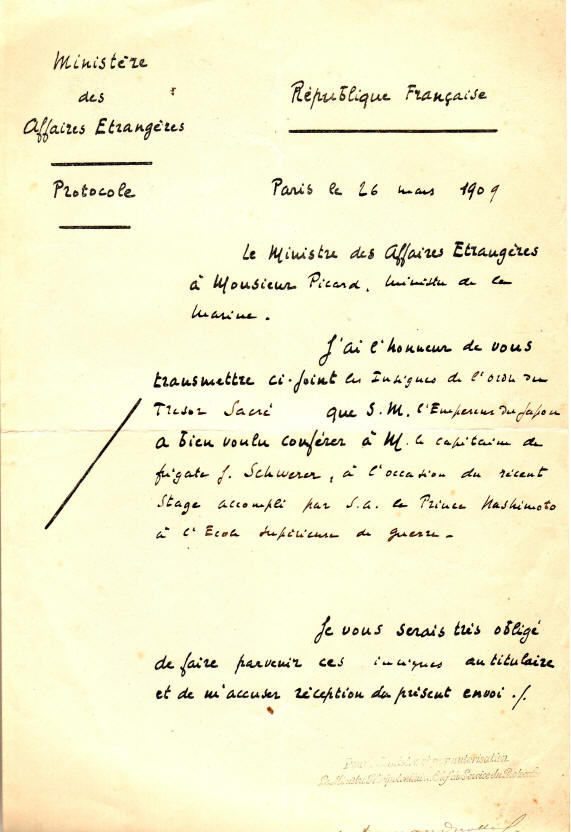 Ministère
des
Affaires Etrangères
Protocole
République Française
Paris le 26 mars 1909
Le Ministre des Affaires Etrangères
à Monsieur Picard, Ministre de la
Marine.
J'ai l'honneur de vous
transmettre ci-joint les Insignes de l'ordre du
Tresor Sacré que S.M. l'Empereur du Japon
a bien voulu conférer à M. le capitaine de
frégate J. Schwerer, à l'occasion du récent
Stage accompli par S.A. le Prince Nashimoto
à l'Ecole Supérieure de guerre.
Je vous serais très obligé
de faire parvenir ces insignes au titulaire
et de m'accuser réception du présent envoi ./.
par autorisation
Le Ministre Plénipotentiaire Chef du Service du Protocole